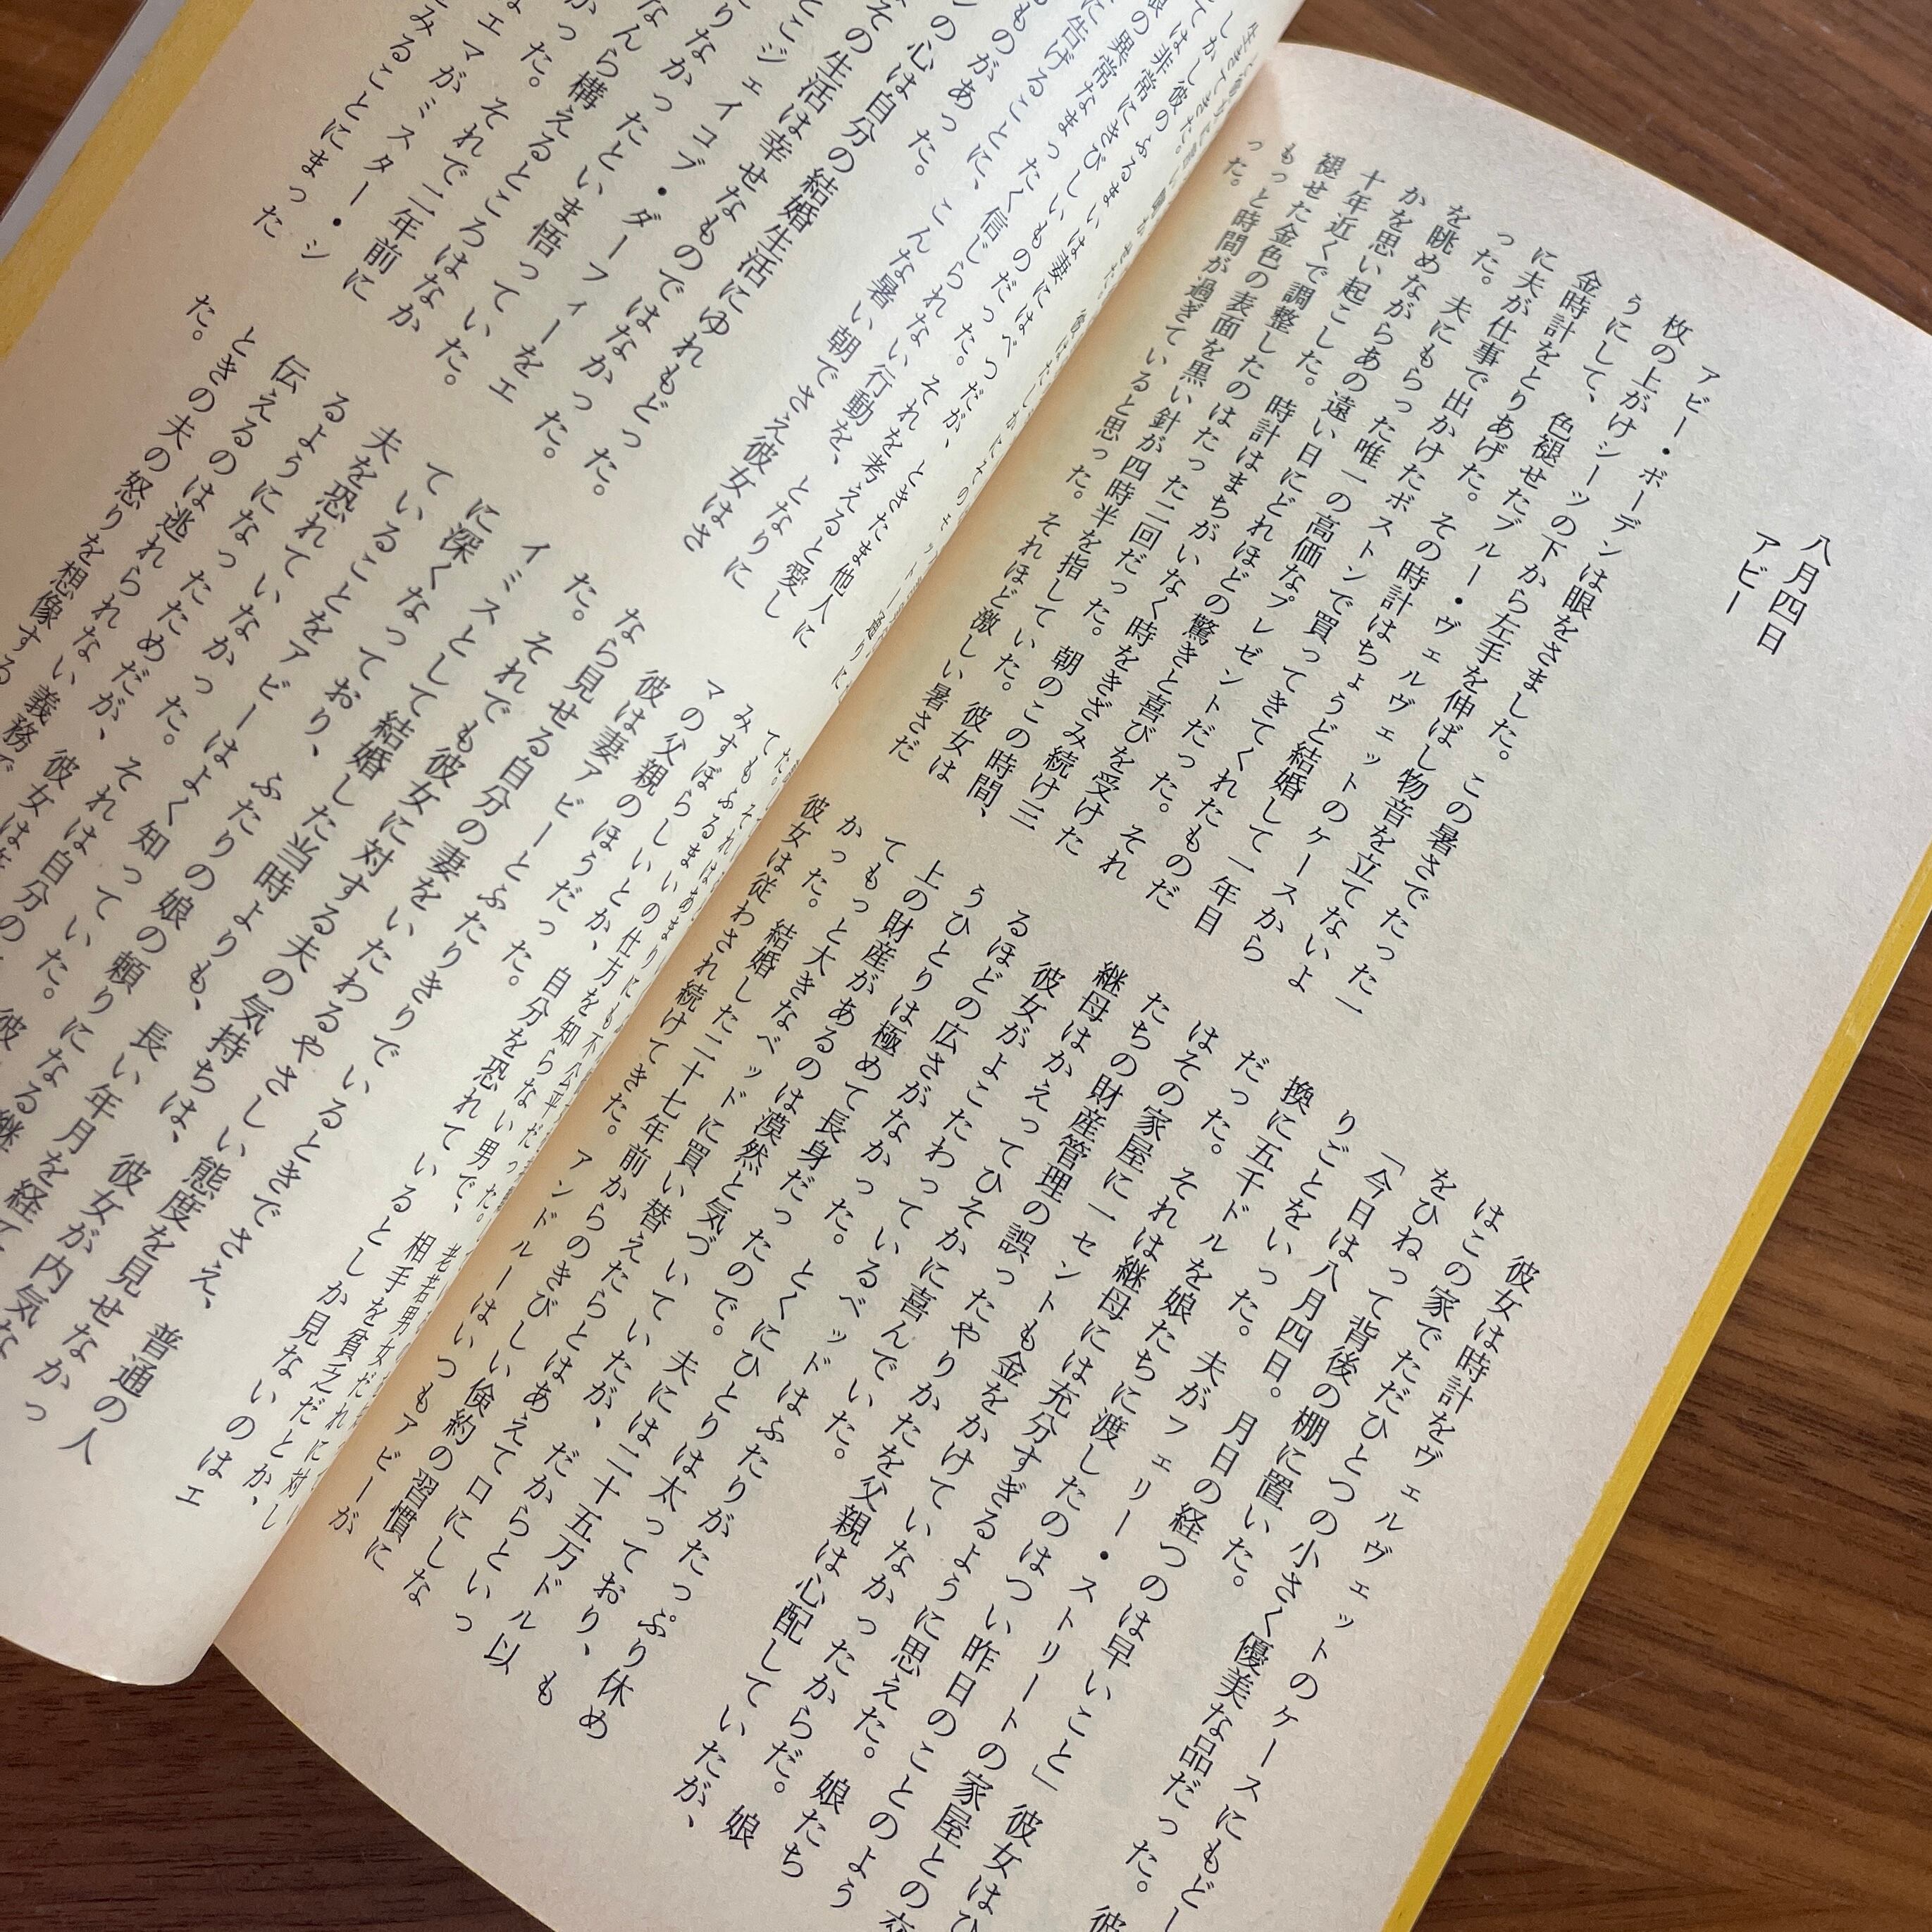 八月四日
アビー
アビー・ボーデンは眼をさました。この暑さでたった一
枚の上がけシーツの下から左手を伸ばし物音を立てないよ
うにして、色褪せたブルー・ヴェルヴェットのケースから
金時計をとりあげた。その時計はちょうど結婚して一年目
に夫が仕事で出かけたボストンで買ってきてくれたものだ
った。夫にもらった唯一の高価なプレゼントだった。それ
を眺めながらあの遠い日にどれほどの驚きと喜びを受けた
かを思い起こした。時計はまちがいなく時をきざみ続け三
十年近くで調整したのはたった二回だった。朝のこの時間、
褪せた金色の表面を黒い針が四時半を指していた。彼女は
もっと時間が過ぎていると思った。それほど激しい暑さだ
った。
彼女は時計をヴェルヴェットのケースにもどし
はこの家でただひとつの小さく優美な品だった。彼
をひねって背後の棚に置いた。
「今日は八月四日。月日の経つのは早いこと」彼女はひ
りごとをいった。夫がフェリー・ストリートの家屋との交
換に五千ドルを娘たちに渡したのはつい昨日のことのよう
だった。それは継母には充分すぎるように思えた。娘たち
はその家屋に一セントも金をかけていなかったからだ。娘
たちの財産管理の誤ったやりかたを父親は心配していたが、
継母はかえってひそかに喜んでいた。
彼女がよこたわっているベッドはふたりがたっぷり休め
るほどの広さがなかった。とくにひとりは太っており、も
うひとりは極めて長身だったので。夫には二十五万ドル以
上の財産があるのは漠然と気づいていたが、だからといっ
てもっと大きなベッドに買い替えたらとはあえて口にしな
かった。結婚した二十七年前からのきびしい倹約の習慣に
彼女は従わされ続けてきた。アンドルーはいつもアビーが
生きてきた。
しかし彼のふるまいは妻にはべつだが、ときたま他人に
ては非常にきびしいものだった。それを考えると愛し
娘の異常なまったく信じられない行動を、となりに
に告げることに、こんな暑い朝でさえ彼女はさ
ものがあった。
ンの心は自分の結婚生活にゆれもどっ
その生活は幸せなものではなかった。
とこジェイコブ・ダーフィーをエ
りなかったといま悟っていた。
なんら構えるところはなか
った。それで二年前に
エマがミスター・シ
みることにまった
てもふるまいの仕方を知らない男で、相手を貧乏だとか、
みすぼらしいとか、自分を恐れているとしか見ないのはエ
マの父親のほうだった。
彼は妻アビーとふたりきりでいるときでさえ、普通の人
なら見せる自分の妻をいたわるやさしい態度を見せなかっ
た。それでも彼女に対する夫の気持ちは、彼女が内気な
イミスとして結婚した当時よりも、長い年月を経て
に深くなっており、ふたりの娘の頼りになる継
ていることをアビーはよく知っていた。彼
夫を恐れていなかった。それは自分の
るようになったためだが、彼女は
伝えるのは逃れられない義務で
ときの夫の怒りを想像する
た。